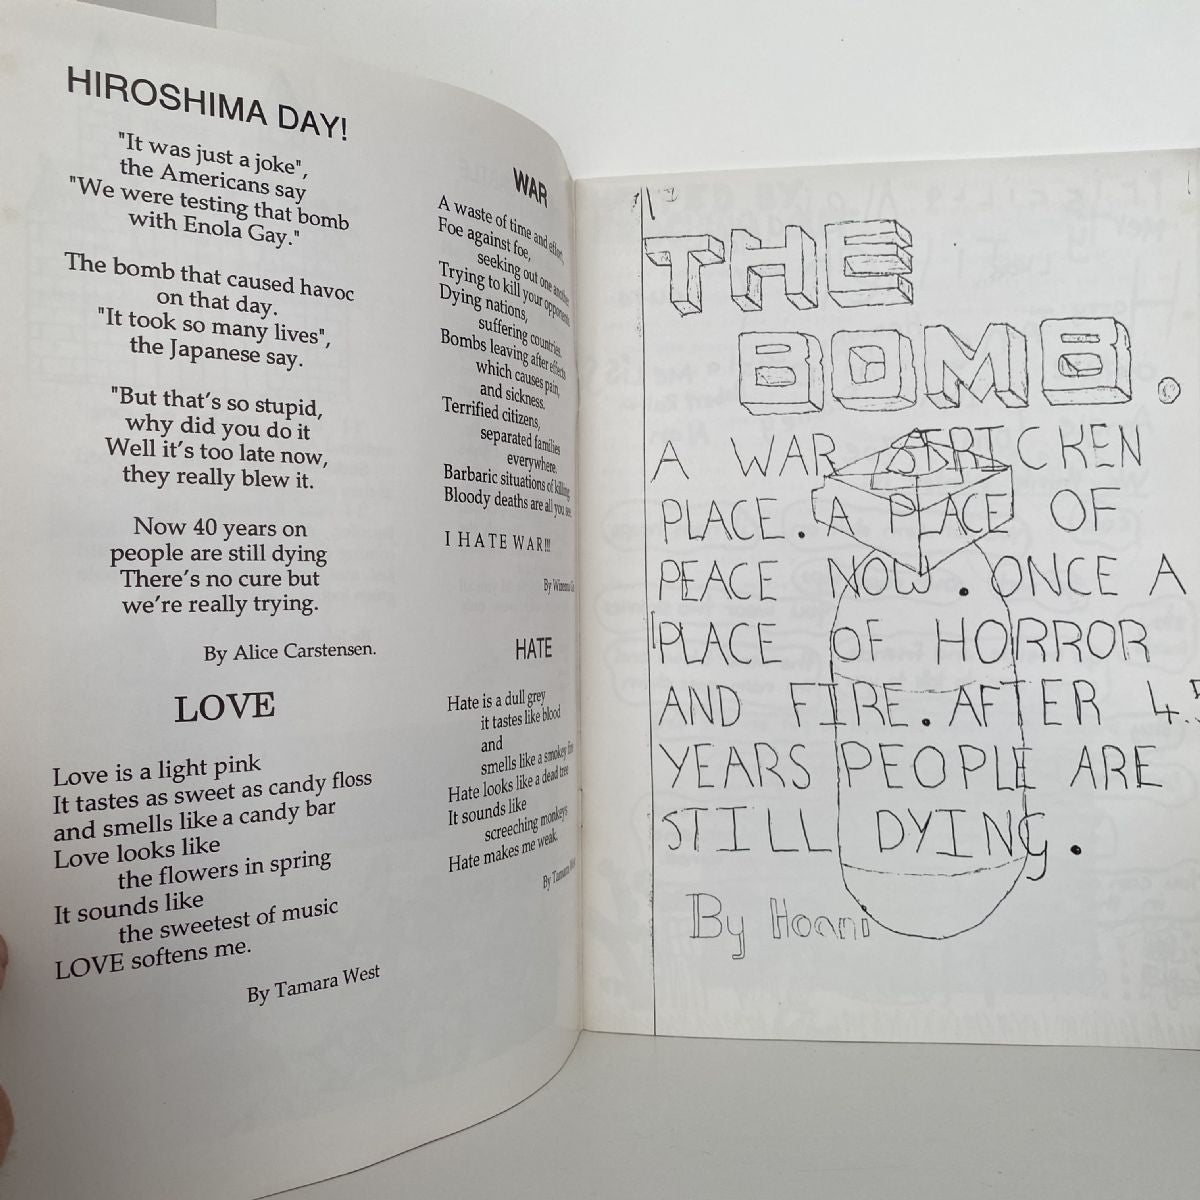 HIROSHIMA DAY!
"It was just a joke",
the Americans say
"We were testing that bomb
with Enola Gay."
The bomb that caused havoc
on that day.
"It took so many lives",
the Japanese say.
"But that's so stupid,
why did you do it
Well it's too late now,
they really blew it.
Now 40 years on
people are still dying
There's no cure but
we're really trying.
By Alice Carstensen.
LOVE
Love is a light pink
It tastes as sweet as candy floss
and smells like a candy bar
Love looks like
the flowers in spring
It sounds like
the sweetest of music
LOVE softens me.
By Tamara West
WAR
A waste of time and effort,
Foe against foe,
seeking out one another
Trying to kill your opponents
Dying nations,
suffering countries.
Bombs leaving after effects
which causes pain,
and sickness.
Terrified citizens,
separated families
everywhere.
Barbaric situations of killing
Bloody deaths are all you see.
I HATE WAR!!!
By
HATE
Hate is a dull grey
it tastes like blood
and
smells like a smokey
Hate looks like a dead tree
It sounds like
screeching monkeys
Hate makes me weak.
By Tamara West
THE
BOMB.
A WAR STRICKEN
PLACE. A PLACE OF
PEACE NOW. ONCE A
PLACE OF HORROR
AND FIRE. AFTER 45
YEARS PEOPLE ARE
STILL DYING.
By Hoani